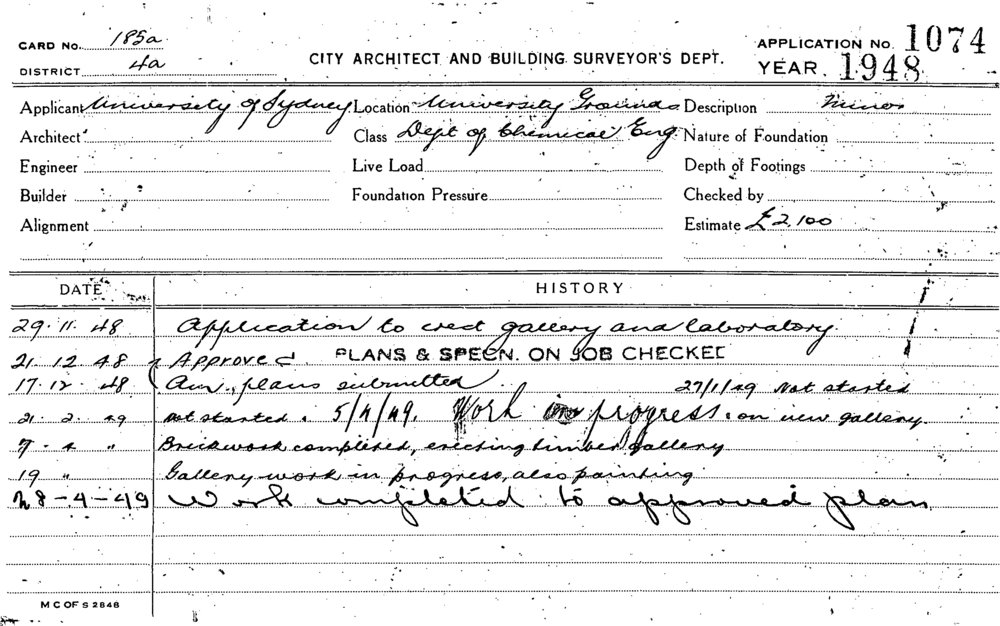 CARD No. 185a
DISTRICT 4a
CITY ARCHITECT AND BUILDING SURVEYOR'S DEPT.
APPLICATION No. 1074
YEAR. 1948
Applicant University of Sydney Location University Grounds Description Minor
Architect Class Dept of Chemical Eng. Nature of Foundation
Engineer Live Load Depth of Footings
Builder Foundation Pressure Checked by
Alignment Estimate £2,100
DATE HISTORY
29.11.48 Application to erect gallery and laboratory
21.12.48 Approved PLANS & SPECN. ON JOB CHECKED
17.12.48 Am. plans submitted 27/1/49 Not started
21.2.49 not started. 5/4/49. Work in progress. on new gallery.
7-4 " Brickwork completed, erecting timber gallery
19 " Gallery work in progress, also painting
28-4-49 Work completed to approved plan
M C OF S 2848